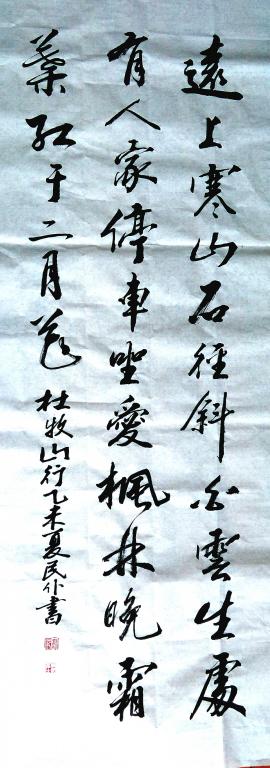 遠上寒山石徑斜白雲生處
有人家停車坐愛楓林晚霜
葉紅于二月花
杜牧山行乙未夏民仆書